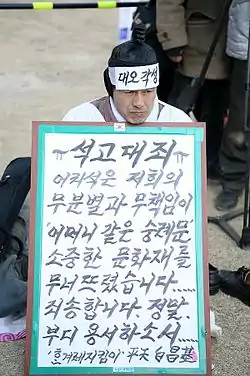 대오각성
석고대죄
어리석은 저희의
무분별과 무책임이
어머니 같은 숭례문,
소중한 문화재를
무너뜨렸습니다.....
죄송합니다. 정말.
부디 용서하소서....
'흔겨레지킴이' 平天 白昌基